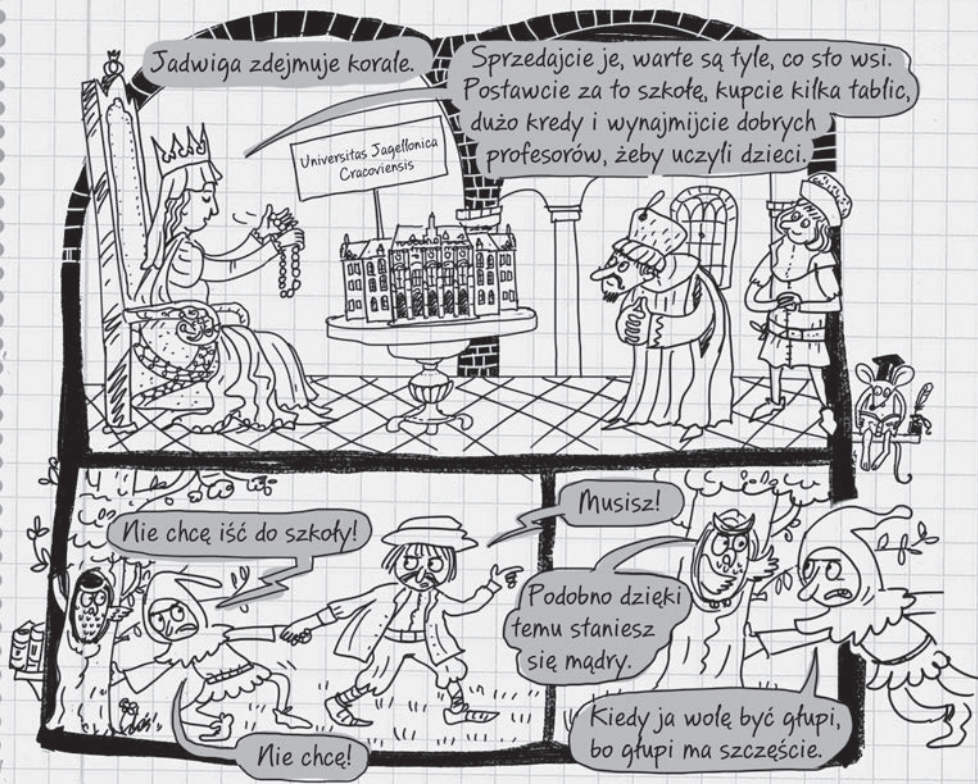 Jadwiga zdejmuje korale.
Sprzedajcie je, warte są tyle, co sto wsi.
Postawcie za to szkołę, kupcie kilka tablic,
dużo kredy i wynajmijcie dobrych
profesorów, żeby uczyli dzieci.
Universitas Jagellonica
Cracoviensis
Nie chcę iść do szkoły!
Musisz!
Nie chcę!
Podobno dzięki
temu staniesz
się mądry.
Kiedy ja wolę być głupi,
bo głupi ma szczęście.